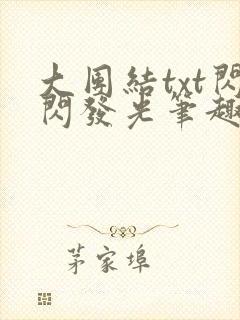 大團結txt閃
閃發光筆趣
茅家埠